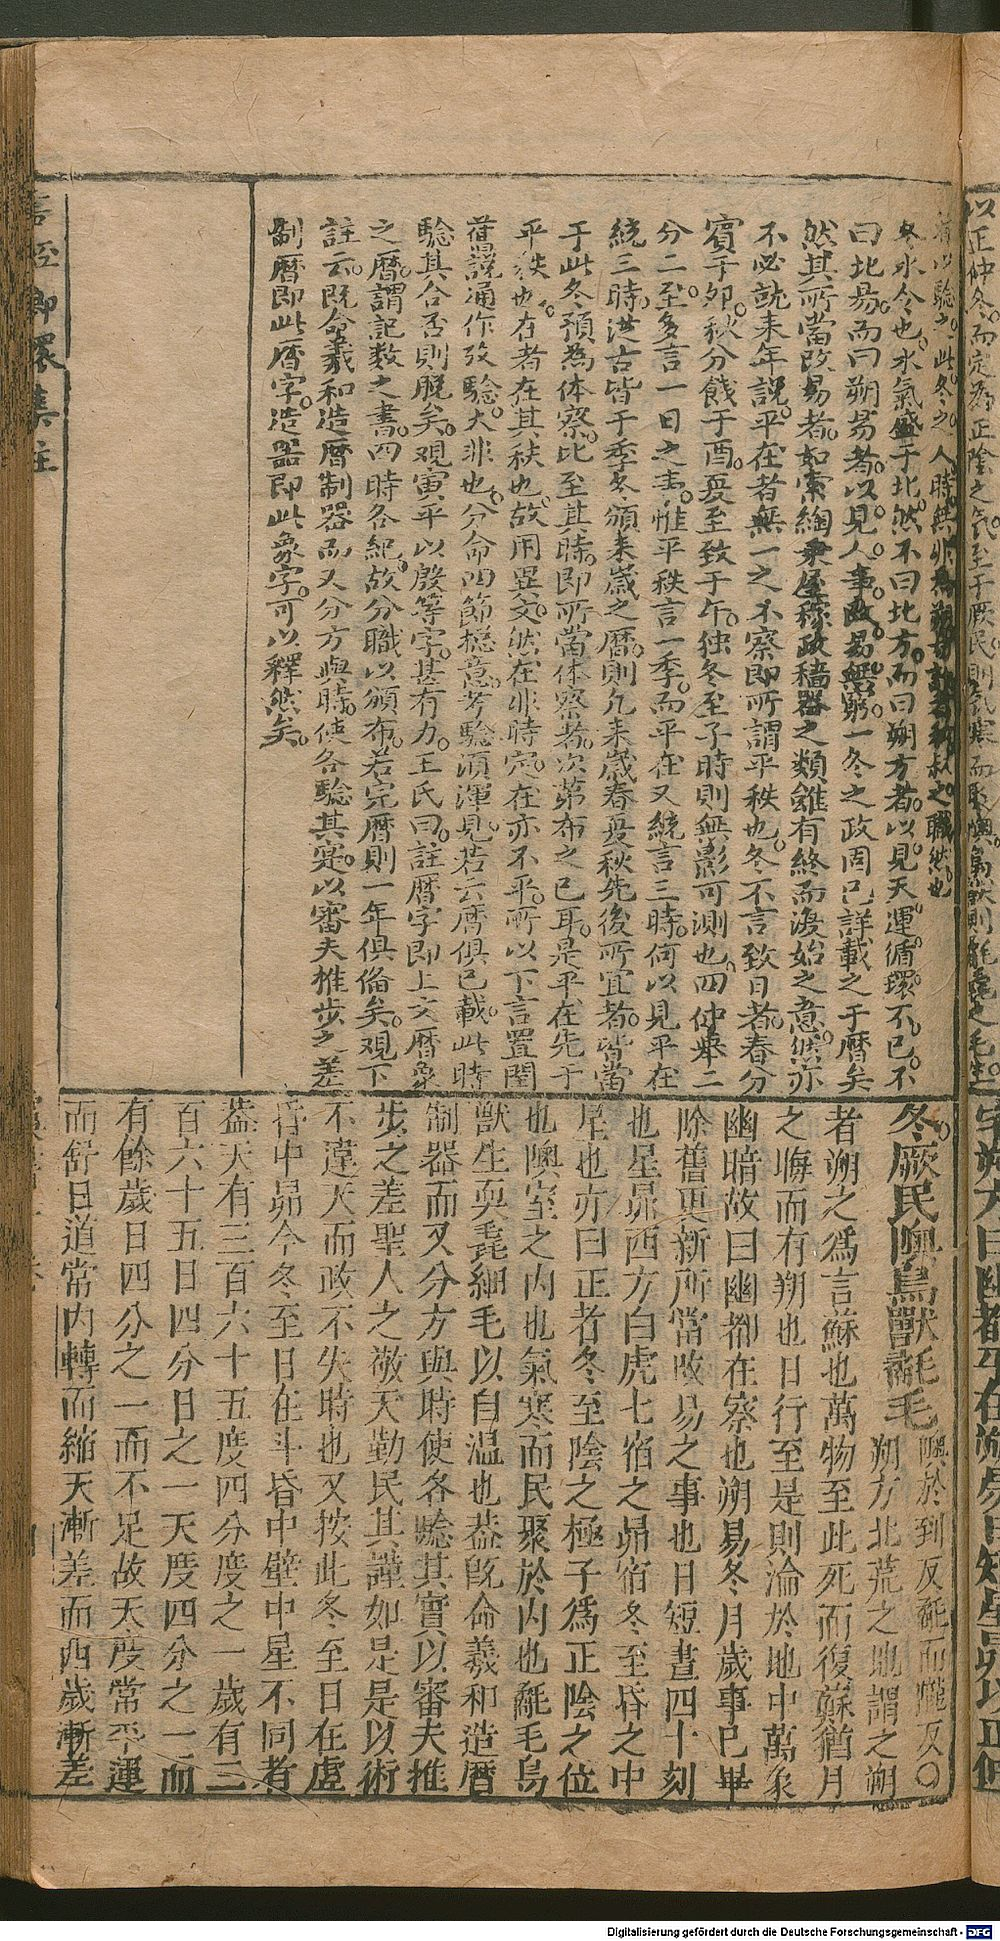 以正仲冬而定為正陰之氣至于厥民則氣寒而聚隩鳥獸則氄毳之毛生
有以驗之此冬之人時無非為朔易計者和叔之職然也
冬水令也水氣盛于北然不曰北方而曰朔方者以見天運循環不已不
曰北易而曰朔易者以見人事改易無窮一冬之政固已詳載之于曆矣
然其所當改易者如索綯乘屋稼政穡器之類雖有終而復始之意然亦
不必說来年說平在者無一之不察即所謂平秩也冬不言致日者春分
賓于卯秋分餞于酉夏至致于午独冬至子時則無影可測也四仲舉二
分二至多言一日之事惟平秩言一季而平在又統言三時何以見平在
統三時盖古皆于季冬頒来歲之曆則凡来歲春夏秋先後所宜者皆當
于此冬預為体察比至其時即所當体察者次第布之已耳是平在先于
平秩也在者在其秩也故用異文然在非時定在亦不平所以下言置閏
舊說涌作攷驗大非也分命四節穏意考驗須渾見若云曆俱已載此時
驗其合否則脫矣观寅平以殷等字甚有力王氏曰註曆字即上文曆象
之曆謂記数之書四時各紀故分職以頒布若完曆則一年俱俻矣观下
註云既命羲和造曆制器而又分方與時使各驗其寔以審夫推步之差
制曆即此曆字造器即此象字可以釋然矣
宅朔方曰幽都平在朔易日短星昴以正仲
冬厥民隩鳥獸氄毛隩於到反氄而隴反〇
朔方北荒之地謂之朔
者朔之為言蘇也萬物至此死而復蘇猶月
之晦而有朔也日行至是則淪於地中萬象
幽暗故曰幽都在察也朔易冬月歲事已畢
除舊更新所當改易之事也日短晝四十刻
也星昴西方白虎七宿之昴宿冬至昏之中
星也亦曰正者冬至陰之極子為正陰之位
也隩室之內也氣寒而民聚於內也氄毛鳥
獸生耎毳細毛以自溫也蓋既命羲和造曆
制器而又分方與時使各驗其實以審夫推
步之差聖人之敬天勤民其謹如是是以術
不違天而政不失時也又按此冬至日在虛
昏中昴今冬至日在斗昏中壁中星不同者
蓋天有三百六十五度四分度之一歲有三
百六十五日四分日之一天度四分之一而
有餘歲日四分之一而不足故天度常平運
而舒日道常內轉而縮天漸差而西歲漸差
書經 集註
Digitalisierung gefördert durch die Deutsche Forschungsgemeinschaft - DFG